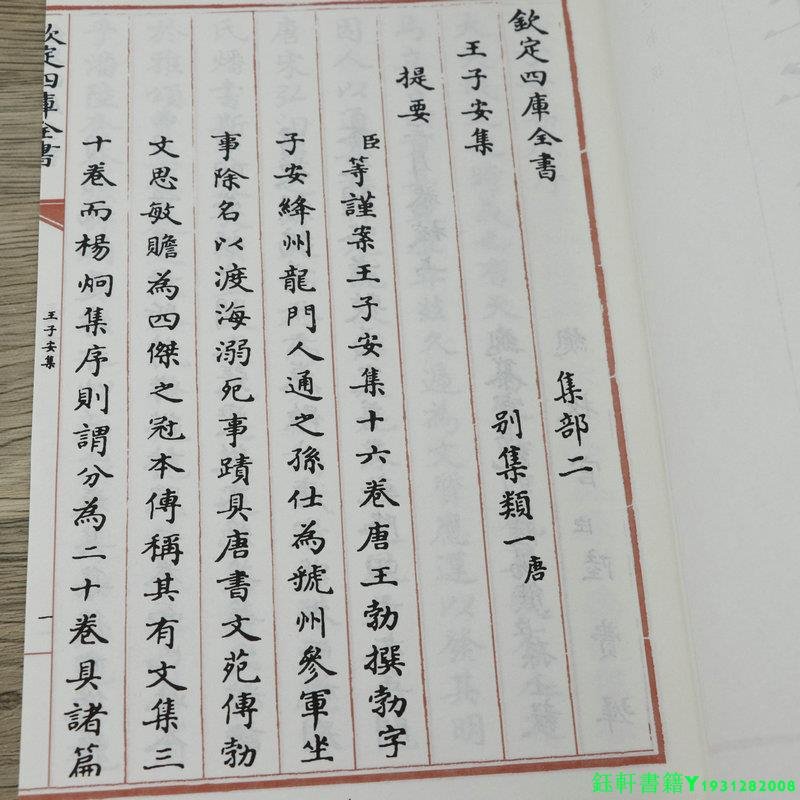 欽定四庫全書 集部二
王子安集 別集類一唐
提要
臣等謹案王子安集十六卷唐王勃撰勃字
子安絳州龍門人通之孫仕為虢州參軍坐
事除名以渡海溺死事蹟具唐書文苑傳勃
文思敏贍為四傑之冠本傳稱其有文集三
十卷而楊炯集序則謂分為二十卷具諸篇
欽定四庫全書
王子安集
一
鈺軒書籍Y1931282008